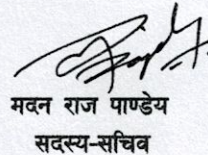 मदन राज पाण्डेय
सदस्य-सचिव